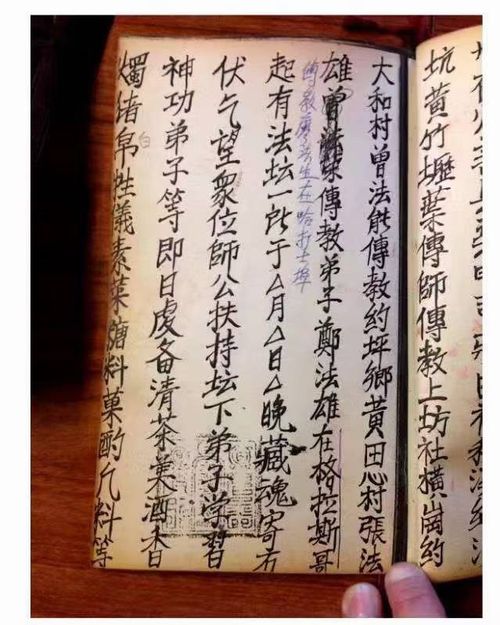 坑黄竹壢葉傳師傳教上坊社橫崗約
大和村曾法能傳教約坪鄉黄田心村張法
雄曾法傳教弟子鄭法雄在格拉斯哥
傳教廖法生在哈打士埠
起有法坛一所于△月△日△晚藏魂寄右
伏乞望衆位師公扶持坛下弟子学習
神功弟子等即日虔备清茶美酒香
白
燭绪帛牲儀素菜糖料菓酌乞料等